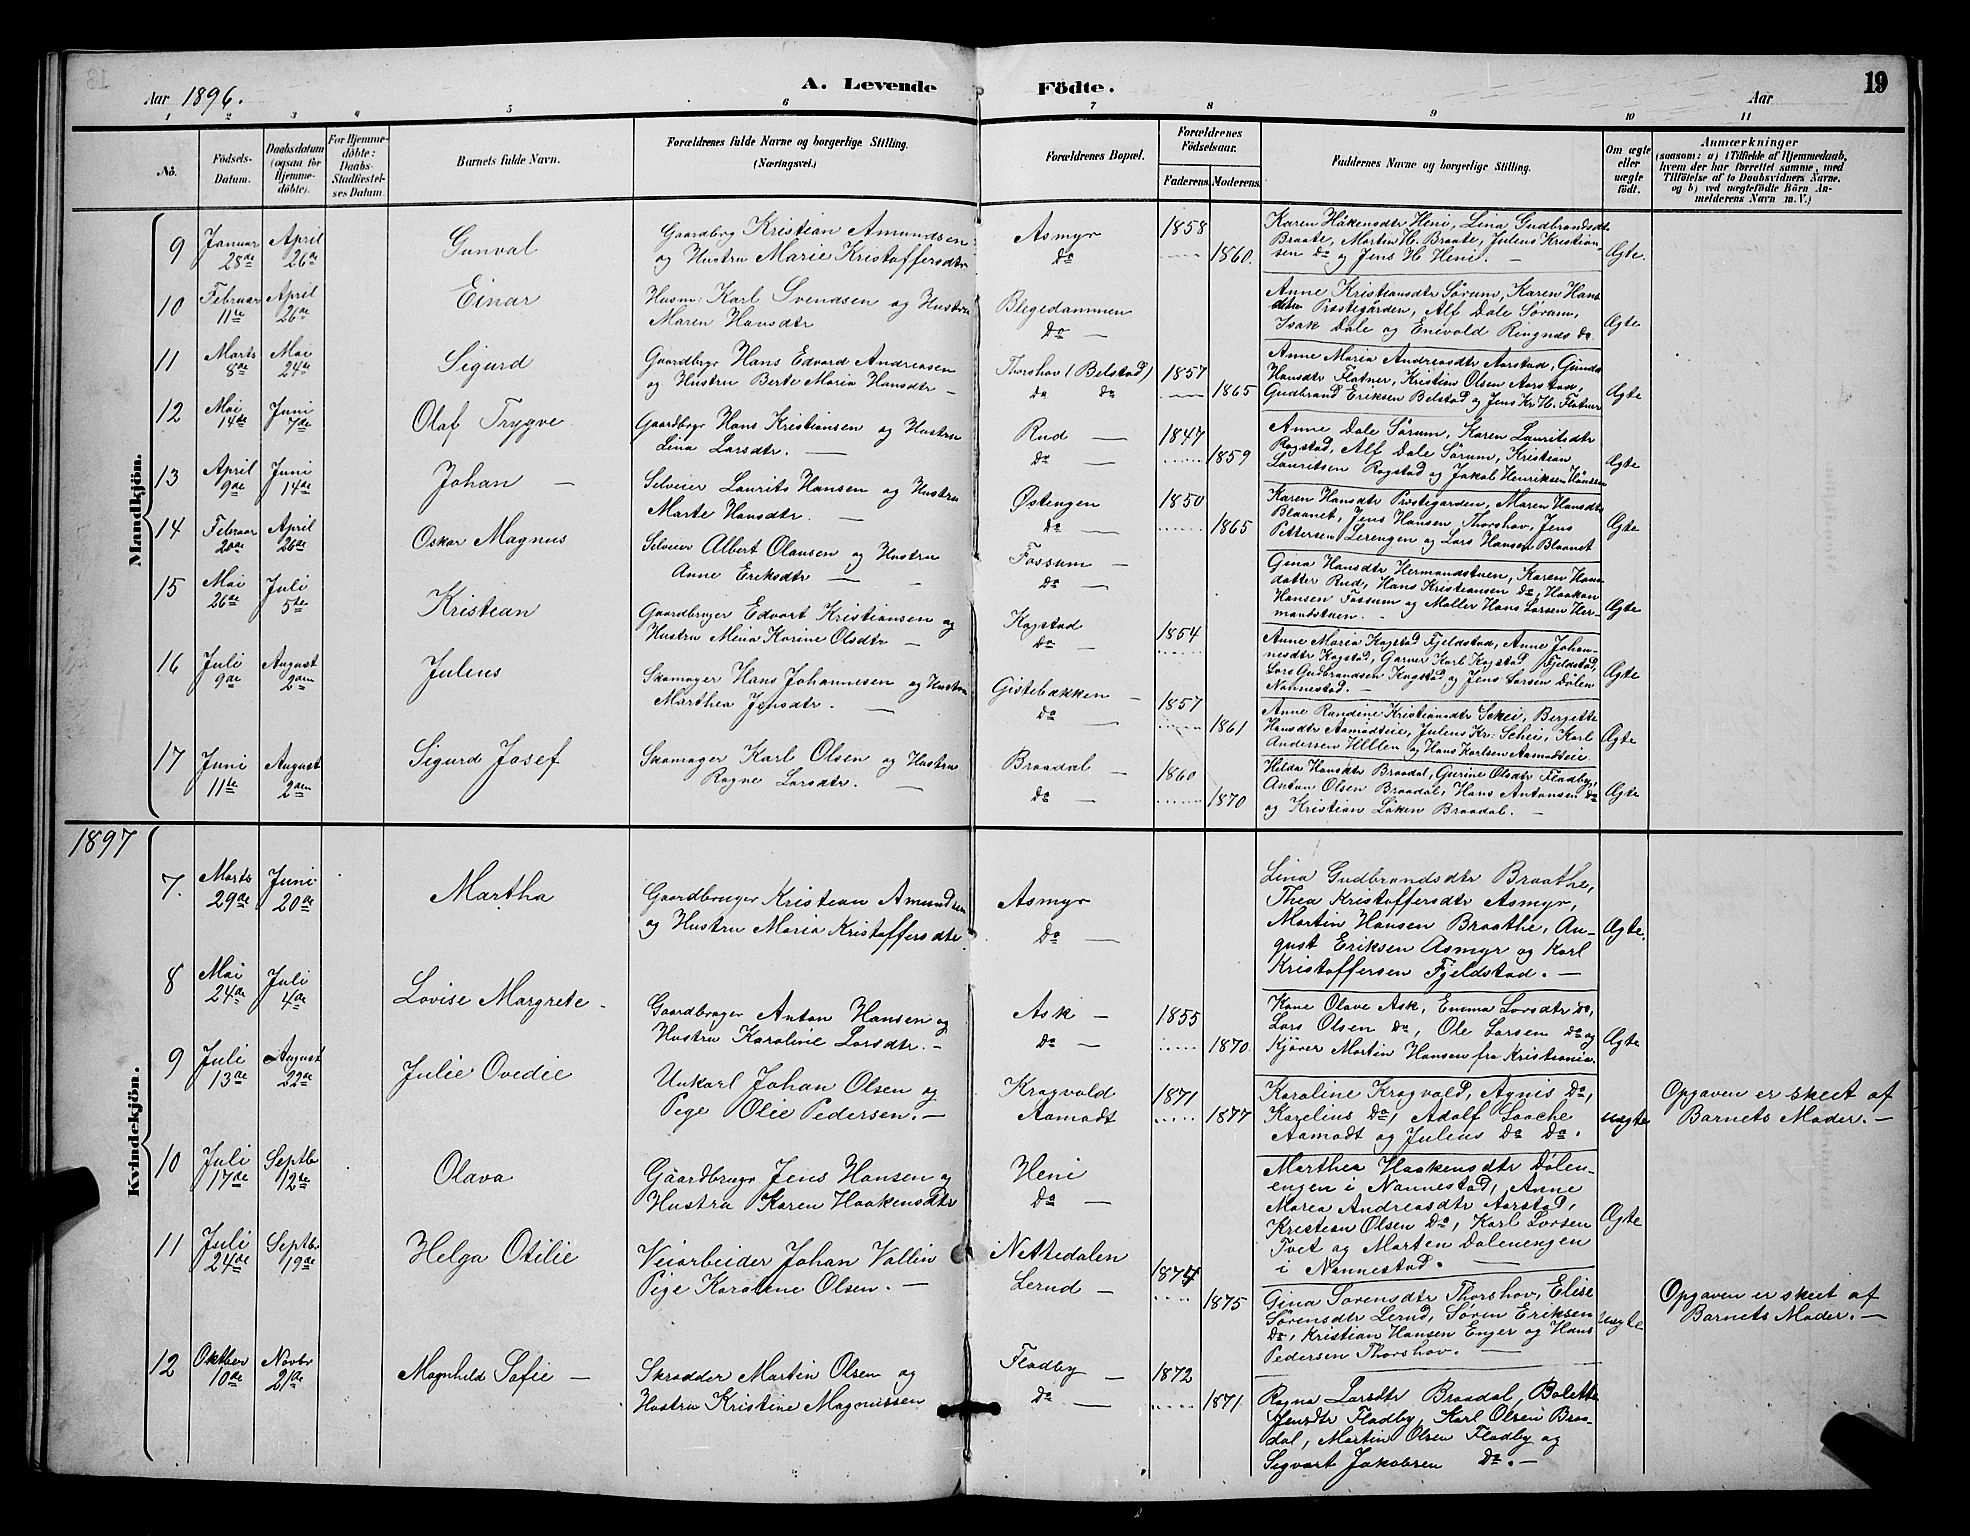 Aar 1896.
A. Levende Födte.
Aar
19
1 2 3 4 5 6 7 8 9 10 11
No.
Födsels-Datum.
Daabsdatum (ogsaa for Hjemme-döbte).
For Hjemme-döbte: Daabs-Stadfæstel-ses Datum.
Barnets fulde Navn.
Forældrenes fulde Navne og borgerlige Stilling. (Næringsvei.)
Forældrenes Bopæl.
Forældrenes Födselsaar.
Faderens. Moderens.
Faddernes Navne og borgerlige Stilling.
Om ægte eller uægte födt.
Anmærkninger
(saasom: a) i Tilfælde af Hjemmedaab, hvem der har forrettet samme, med Tilföielse af to Daabsvidners Navne, og b) ved uægtefödte Börn An-melderens Navn m. V.)
Mandkjön.
9 Januar 28de April 26de Gunval
Gaardbrg Kristian Amundsen
og Hustru Marie Kristoffersdtr
Asmyr
do
1858 1860.
Karen Håkensdtr Heni, Lina Gudbrandsdt
Braate, Martin H. Braate, Julius Kristian-
sen do og Jens H. Heni. —
Ægte.
10 Februar 11te April 26de Einar
Husm: Karl Svendsen og Hustru
Maren Hansdtr
Blegedammen
do —
Anne Kristiansdtr Sørum, Karen Hans
dtr Præstegården, Alf Dale Sørum,
Isak Dale og Enevold Ringnæs do.
Ægte
11 Marts 8de Mai 24de Sigurd
Gaardbrgr Hans Edvard Andreasen
og Hustru Berte Maria Hansdtr —
Thorshov (Belstad)
do do
1857 1865
Anne Maria Andreasdtr Aarstad, Gunda
Hansdtr Flatner, Kristian Olsen Aarstad,
Gudbrand Eriksen Belstad og Jens Kr. H. Flatner
Ægte
12 Mai 14de Juni 7de Olaf Trygve
Gaardbrgr Hans Kristiansen og Hustru
Lina Larsdtr. —
Rud —
do —
1847 1859
Anne Dale Sørum, Karen Lauritsdtr
Rogstad, Alf Dale Sørum, Kristian
Lauritsen Rogstad og Jakob Henriksen Hansen
Ægte
13 April 9de Juni 14de Johan —
Selveier Laurits Hansen og Hustru
Marte Hansdtr. —
Østengen
do —
1850 1865
Karen Hansdtr Præstegarden, Maren Hansdtr
Blaanet, Jens Hansen, Thorshov, Jens
Pettersen Lerengen og Lars Hansen Blaanet
Ægte
14 Februar 20de April 26de Oskar Magnus
Selveier Albert Olausen og Hustru
Anne Eriksdtr —
Fossum —
do —
Gina Hansdtr Hermandstuen, Karen Hans
datter Rud, Hans Kristiansen do, Haakon
Hansen Fossum og Møller Hans Larsen Her-
mandstuen. —
Ægte
15 Mai 26de Juli 5te Kristian
Gaardbruger Edvart Kristiansen og
Hustru Mina Karine Olsdtr —
Kogstad
do —
1854
Anne Maria Kogstad Fjeldstad, Anne Johan-
nesdtr Kogstad, Garver Karl Kogstad Fjeldstad,
Lars Gudbrandsen Kogstad og Jens Larsen Dølen
Nannestad. —
Ægte
16 Juli 9de August 2den Julius
Skomager Hans Johannesen og Hustru
Marthea Jensdtr. —
Gistebækken —
do —
1857 1861
Anne Randine Kristiansdtr Schei, Bergitte
Hansdtr Aamodteie, Julius Kr: Schei, Karl
Andersen Ulllen og Hans Karlsen Aamodteie
Ægte
17 Juni 11te August 2den Sigurd Josef
Skomager Karl Olsen og Hustru
Ragne Larsdtr. —
Braadal —
do —
1860 1870
Hilda Hansdtr Braadal, Gurine Olsdtr Fladby,
Anton Olsen Braadal, Hans Antonsen do
og Kristian Løken Braadal. —
Ægte
1897
Kvindekjön.
7. Marts 29de Juni 20de Martha
Gaardbruger Kristian Amundsen
og Hustru Maria Kristoffersdtr.
Asmyr
do —
Lina Gudbrandsdtr Braathe,
Thea Kristoffersdtr Asmyr,
Martin Hansen Braathe, Au-
gust Eriksen Asmyr og Karl
Kristoffersen Fjeldstad. —
Ægte.
8 Mai 24de Juli 4de Lovise Margrete —
Gaardbruger Anton Hansen og
Hustru Karoline Larsdtr. —
Ask —
do —
1855 1870.
Kone Olave Ask, Emma Larsdtr do,
Lars Olsen do, Ole Larsen do og
Kjører Martin Hansen fra Kristiania.
Ægte
9 Juli 13de August 22de Julie Ovedie
Unkarl Johan Olsen og
Pige Olie Pedersen. —
Kragvold
Aamodt
1871 1877
Karoline Kragvold, Agnis do,
Karelius do, Adolf Laache
Aamodt og Julius do do.
uægte
Opgaven er skeet af
Barnets Moder. —
10 Juli 17de Septbr 12te Olava
Gaardbrugr Jens Hansen og
Hustru Karen Haakensdtr
Heni
do —
Marthea Haakensdtr Dølen-
engen i Nannestad, Anne
Marea Andreasdtr Aarstad,
Kristian Olsen do, Karl Larsen
Tvet og Marten Dølenengen
i Nannestad. —
Ægte
11 Juli 24de Septbr 19de Helga Otilie
Veiarbeider Johan Vallin
Pige Karoline Olsen. —
Nettedalen
Lerud —
1874 1875
Gina Sørensdtr Thorshov, Elise
Sørensdtr Lerud, Søren Eriksen
do, Kristian Hansen Enger og Hans
Pedersen Thorshov. —
uægte
Opgaven er skeet af
Barnets Moder. —
12 Oktber 10de Novbr 21de Magnhild Sofie —
Skrædder Martin Olsen og
Hustru Kristine Magnussen
Fladby —
do —
1872 1871.
Ragna Larsdtr Braadal, Bolette
Jensdtr Fladby, Karl Olsen Braa-
dal, Martin Olsen Fladby og
Segvart Jakobsen do. —